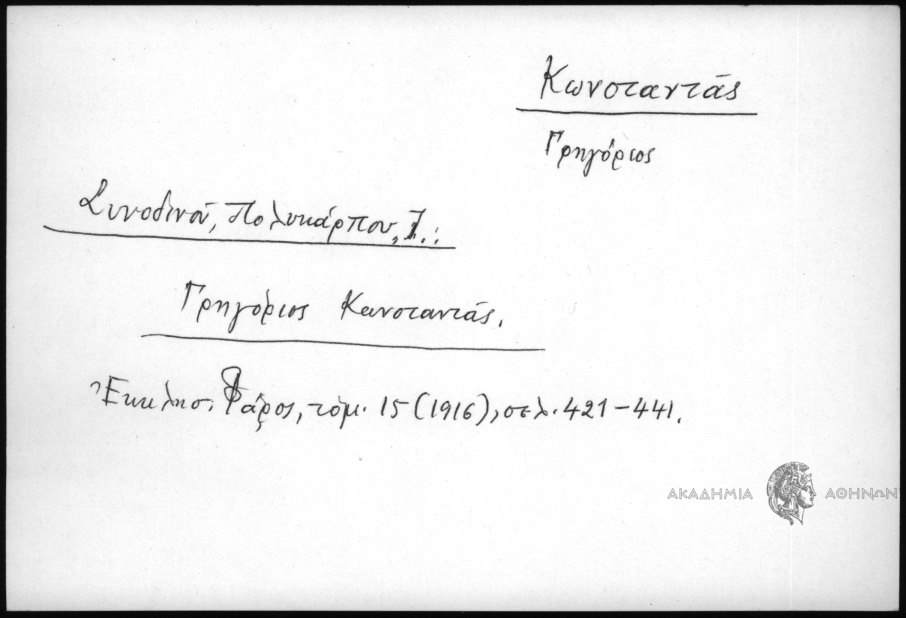 Κωνσταντάς
Γρηγόριος
Συνοδινού, Πολυκάρπου, Ι.:
Γρηγόριος Κωνσταντάς.
Ἐκκλησ. Φάρος, τόμ. 15 (1916), σελ. 421-441.
ΑΚΑΔΗΜΙΑ ΑΘΗΝΩΝ